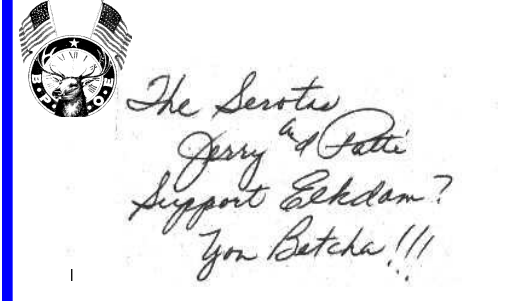 B P O E
The Serotas
Jerry and Patti
Support Elkdom?
You Betcha!!!